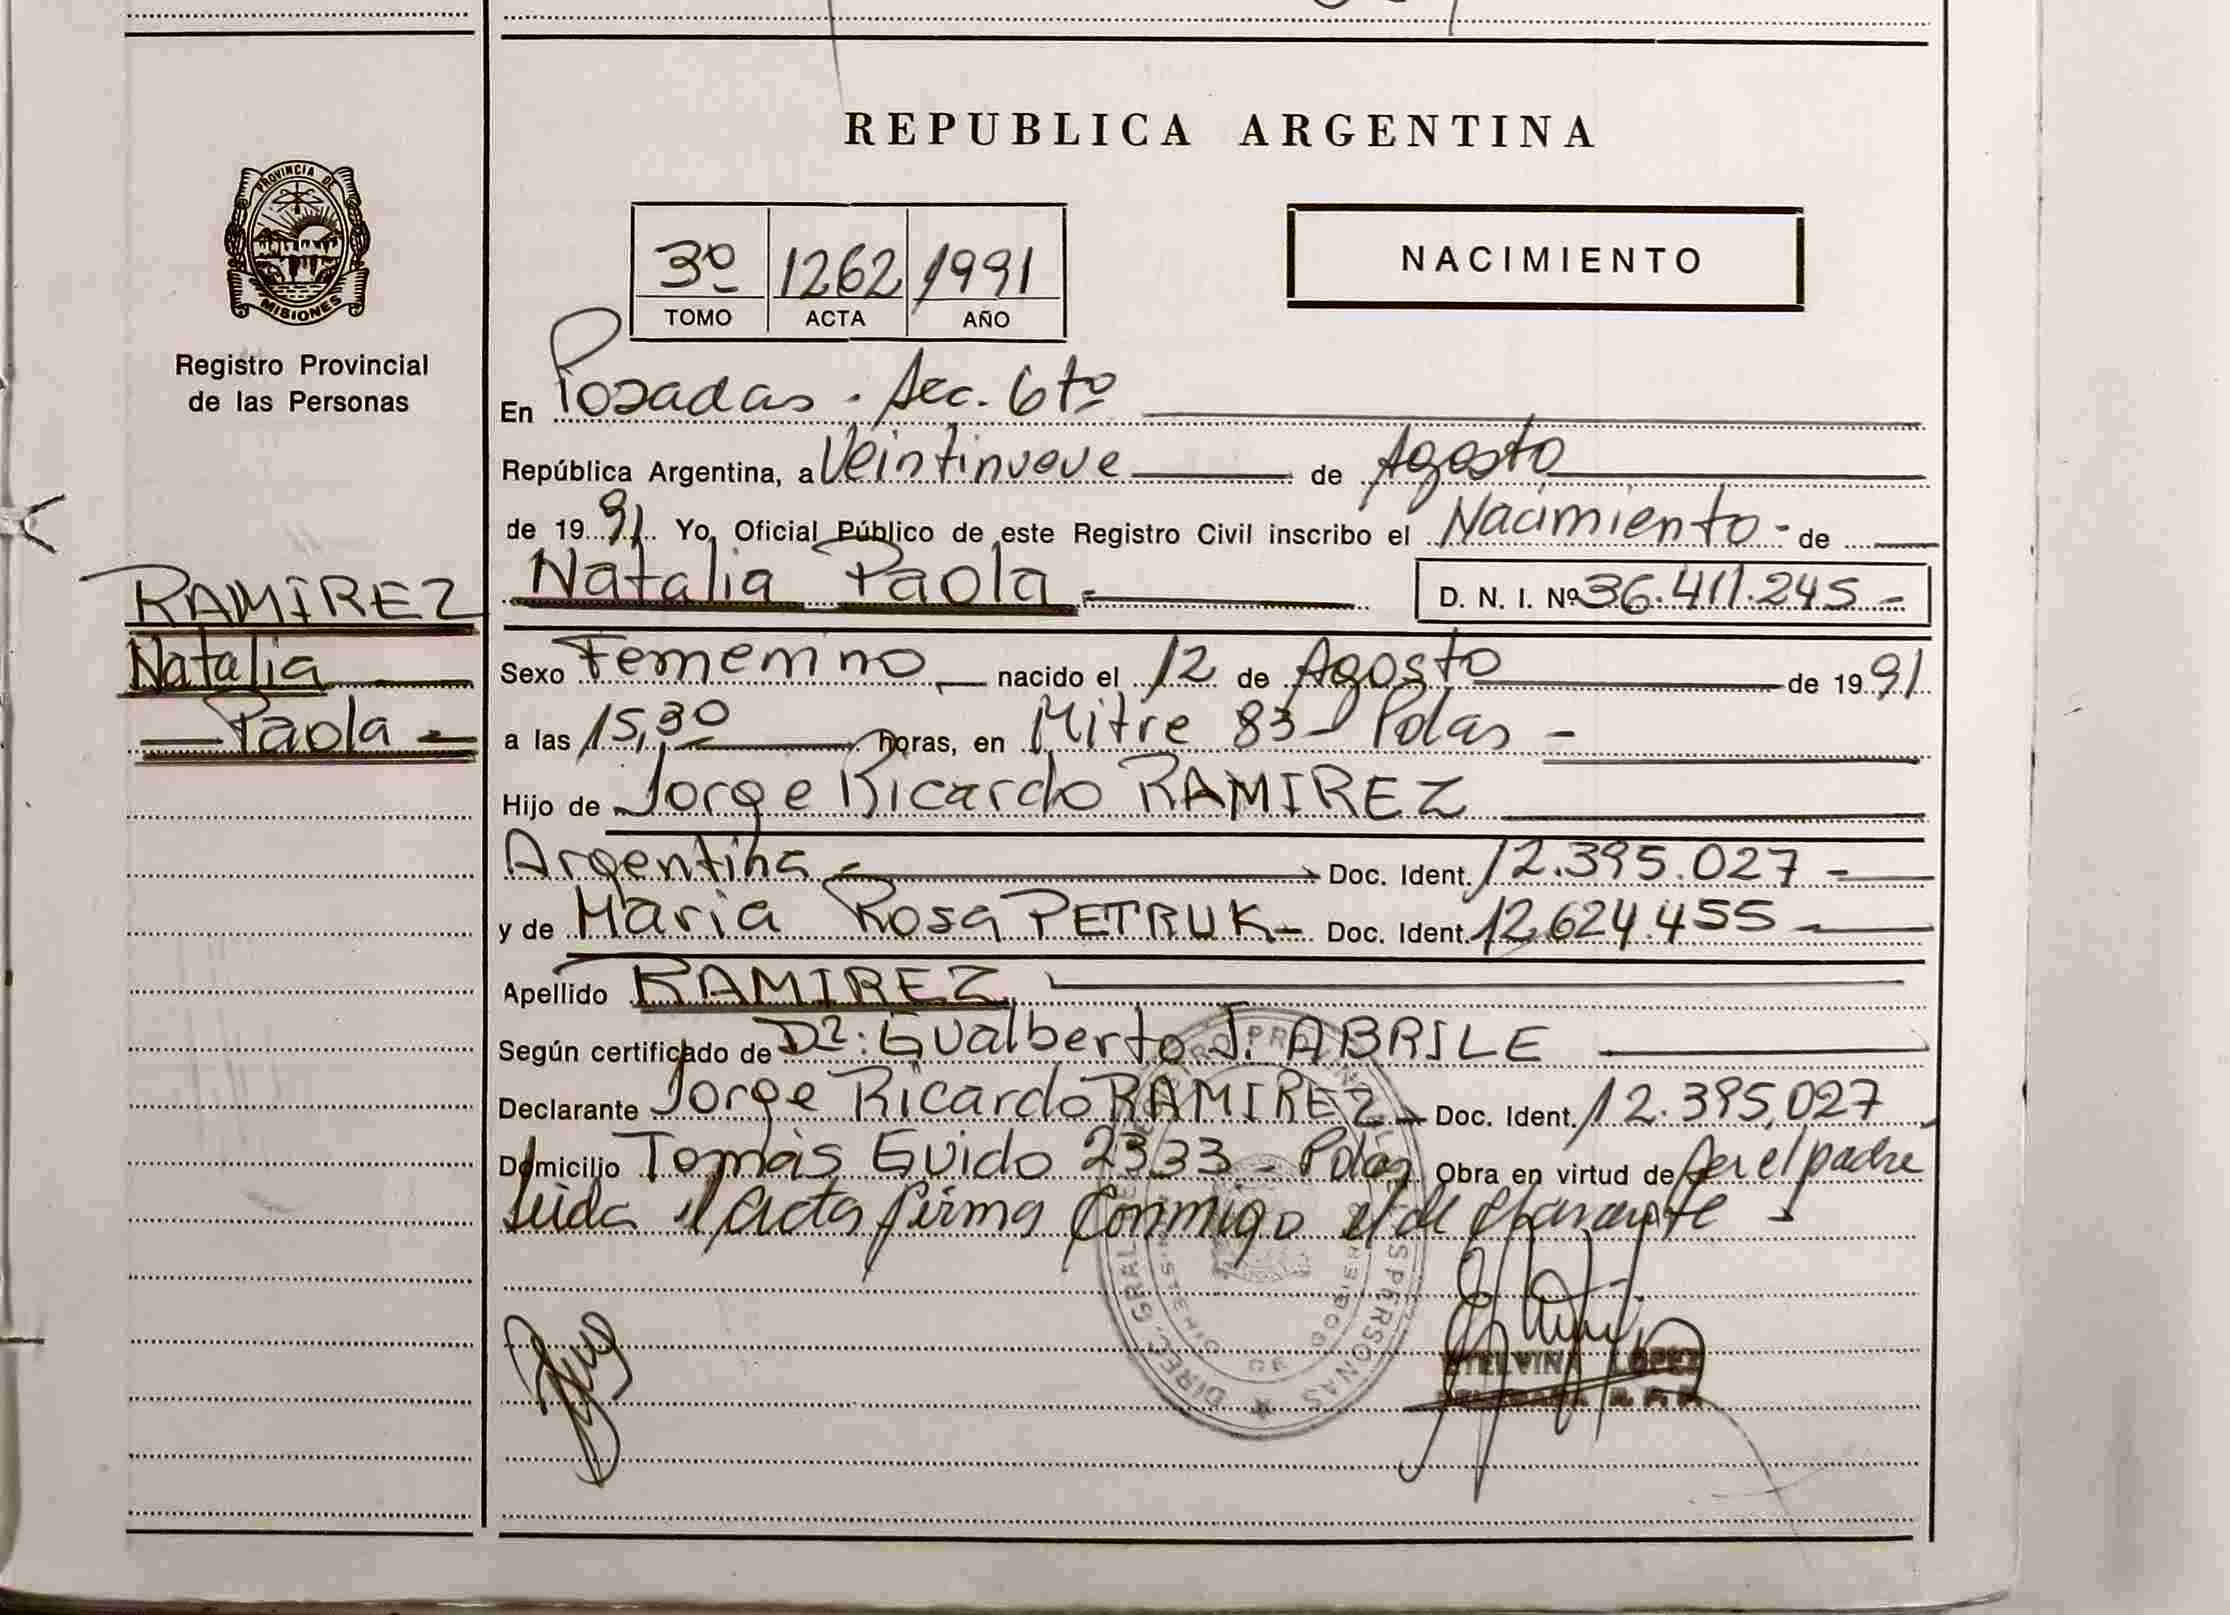 REPUBLICA ARGENTINA
PROVINCIA DE
MISIONES
Registro Provincial
de las Personas
3º 1262 1991
TOMO ACTA AÑO
NACIMIENTO
En Posadas - Sec. 6tº
República Argentina, a Veintinueve de Agosto
de 1991 Yo, Oficial Público de este Registro Civil inscribo el Nacimiento - de
RAMIREZ
Natalia
Paola
Natalia Paola D. N. I. Nº 36.411.245 -
Sexo Femenino nacido el 12 de Agosto de 1991
a las 15,30 horas, en Mitre 83 - Pdas -
Hijo de Jorge Ricardo RAMIREZ
Argentina - Doc. Ident. 12.395.027 -
y de Maria Rosa PETRUK - Doc. Ident. 12.624.455
Apellido RAMIREZ
Según certificado de Dr: Gualberto J. ABRILE
Declarante Jorge Ricardo RAMIREZ - Doc. Ident. 12.395.027
Domicilio Tomás Guido 2333 - Pdas Obra en virtud de ser el padre
Leida el acta firma conmigo el declarante -
DIREC. GRAL. PERSONAS
MINISTERIO DE GOBIERNO
LOPEZ